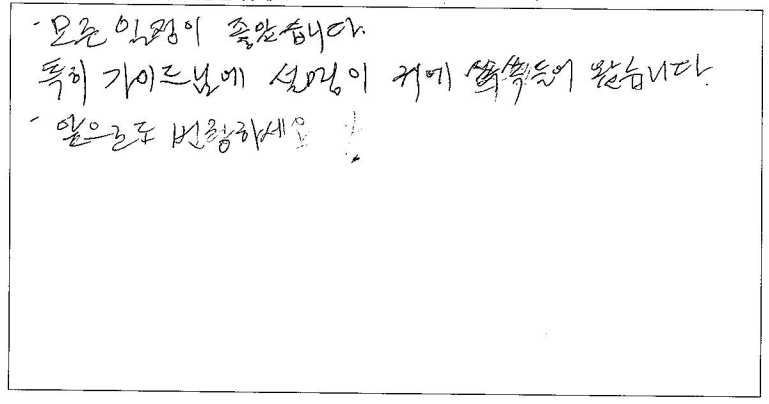 · 모든 일정이 좋았습니다.
특히 가이드님에 설명이 귀에 쏙쏙들어 왔습니다.
· 앞으로도 번창하세요!